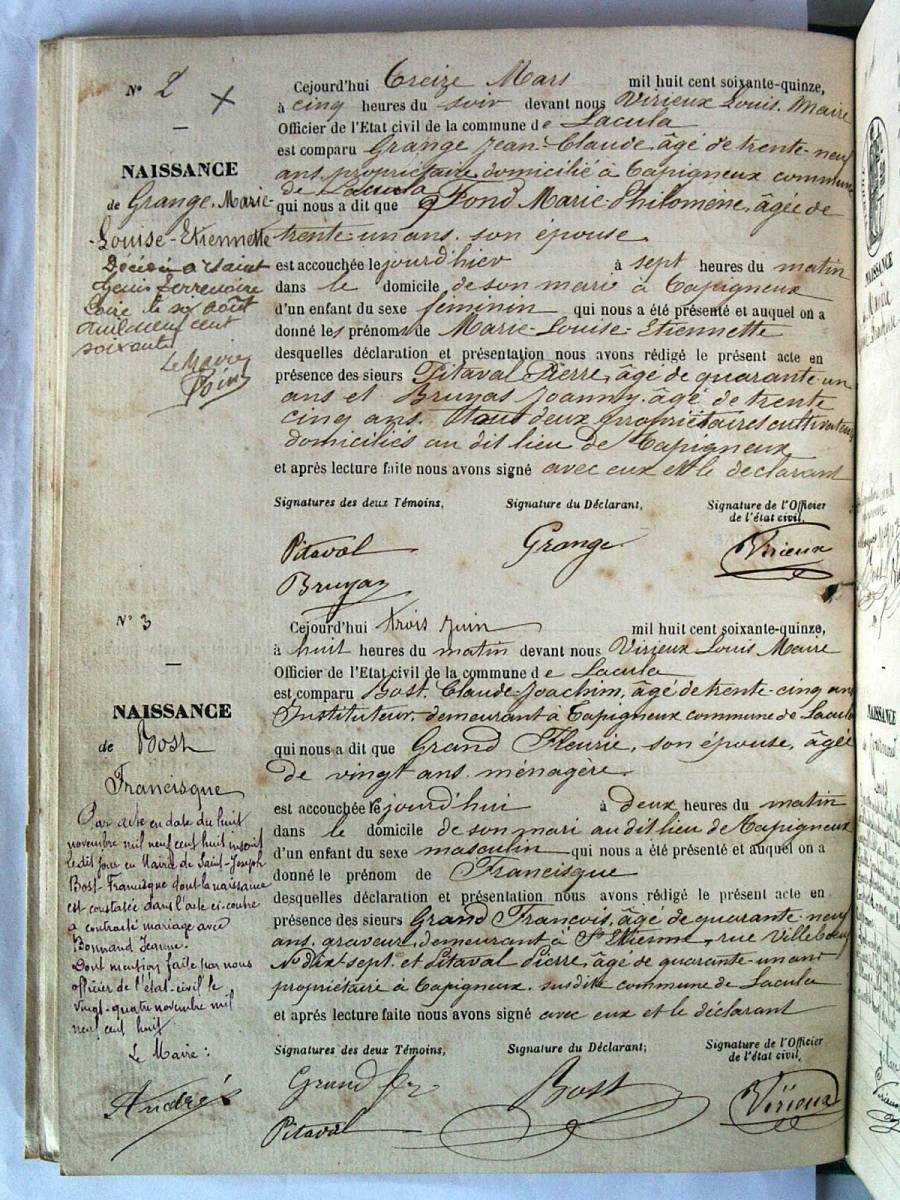 N° 2
NAISSANCE
de Grange, Marie-
-Louise-Etiennette
Décédée à Saint
Genis Terrenoire
Loire le six août
mil neuf cent
soixante
Le Maire
Cejourd'hui treize Mars mil huit cent soixante-quinze,
à cinq heures du soir devant nous Virieux Louis, Maire
Officier de l'Etat civil de la commune de Lacula
est comparu Grange Jean-Claude, âgé de trente-neuf
ans, propriétaire domicilié à Capigneux commune
de Lacula
qui nous a dit que Fond Marie-Philomène, âgée de
trente-un ans, son épouse
est accouchée le jourd'hier à sept heures du matin
dans le domicile de son mari à Capigneux
d'un enfant du sexe féminin qui nous a été présenté et auquel on a
donné les prénoms de Marie-Louise-Etiennette
desquelles déclaration et présentation nous avons rédigé le présent acte en
présence des sieurs Pitaval Pierre, âgé de quarante-un
ans et Bruyas Joanny, âgé de trente
cinq ans. Tous deux propriétaires cultivateurs
domiciliés au dit lieu de Capigneux
et après lecture faite nous avons signé avec eux et le déclarant
Signatures des deux Témoins, Signature du Déclarant, Signature de l'Officier
de l'état civil,
Pitaval Grange Virieux
Bruyas
N° 3
NAISSANCE
de Bost
Francisque
Par acte en date du huit
novembre mil neuf cent huit inscrit
le dit jour en Mairie de Saint-Joseph
Bost Francisque dont la naissance
est constatée dans l'acte ci-contre
a contracté mariage avec
Bonnand Jeanne.
Dont mention faite par nous
officier de l'état-civil le
vingt-quatre novembre mil
neuf cent huit
Le Maire :
Andrés
Cejourd'hui trois Juin mil huit cent soixante-quinze,
à huit heures du matin devant nous Virieux Louis Maire
Officier de l'Etat civil de la commune de Lacula
est comparu Bost, Claude-Joachim, âgé de trente-cinq ans
Instituteur, demeurant à Capigneux commune de Lacula
qui nous a dit que Grand Fleurie, son épouse, âgée
de vingt ans, ménagère.
est accouchée le jourd'hui à deux heures du matin
dans le domicile de son mari au dit lieu de Capigneux
d'un enfant du sexe masculin qui nous a été présenté et auquel on a
donné le prénom de Francisque
desquelles déclaration et présentation nous avons rédigé le présent acte en
présence des sieurs Grand François, âgé de quarante-neuf
ans, graveur, demeurant à St Etienne, rue Villebœuf
N° dix-sept, et Pitaval Pierre, âgé de quarante-un ans
propriétaire à Capigneux, susdite commune de Lacula
et après lecture faite nous avons signé avec eux et le déclarant
Signatures des deux Témoins, Signature du Déclarant, Signature de l'Officier
de l'état civil,
Grand Bost Virieux
Pitaval
NAISSANCE
NAISSANCE